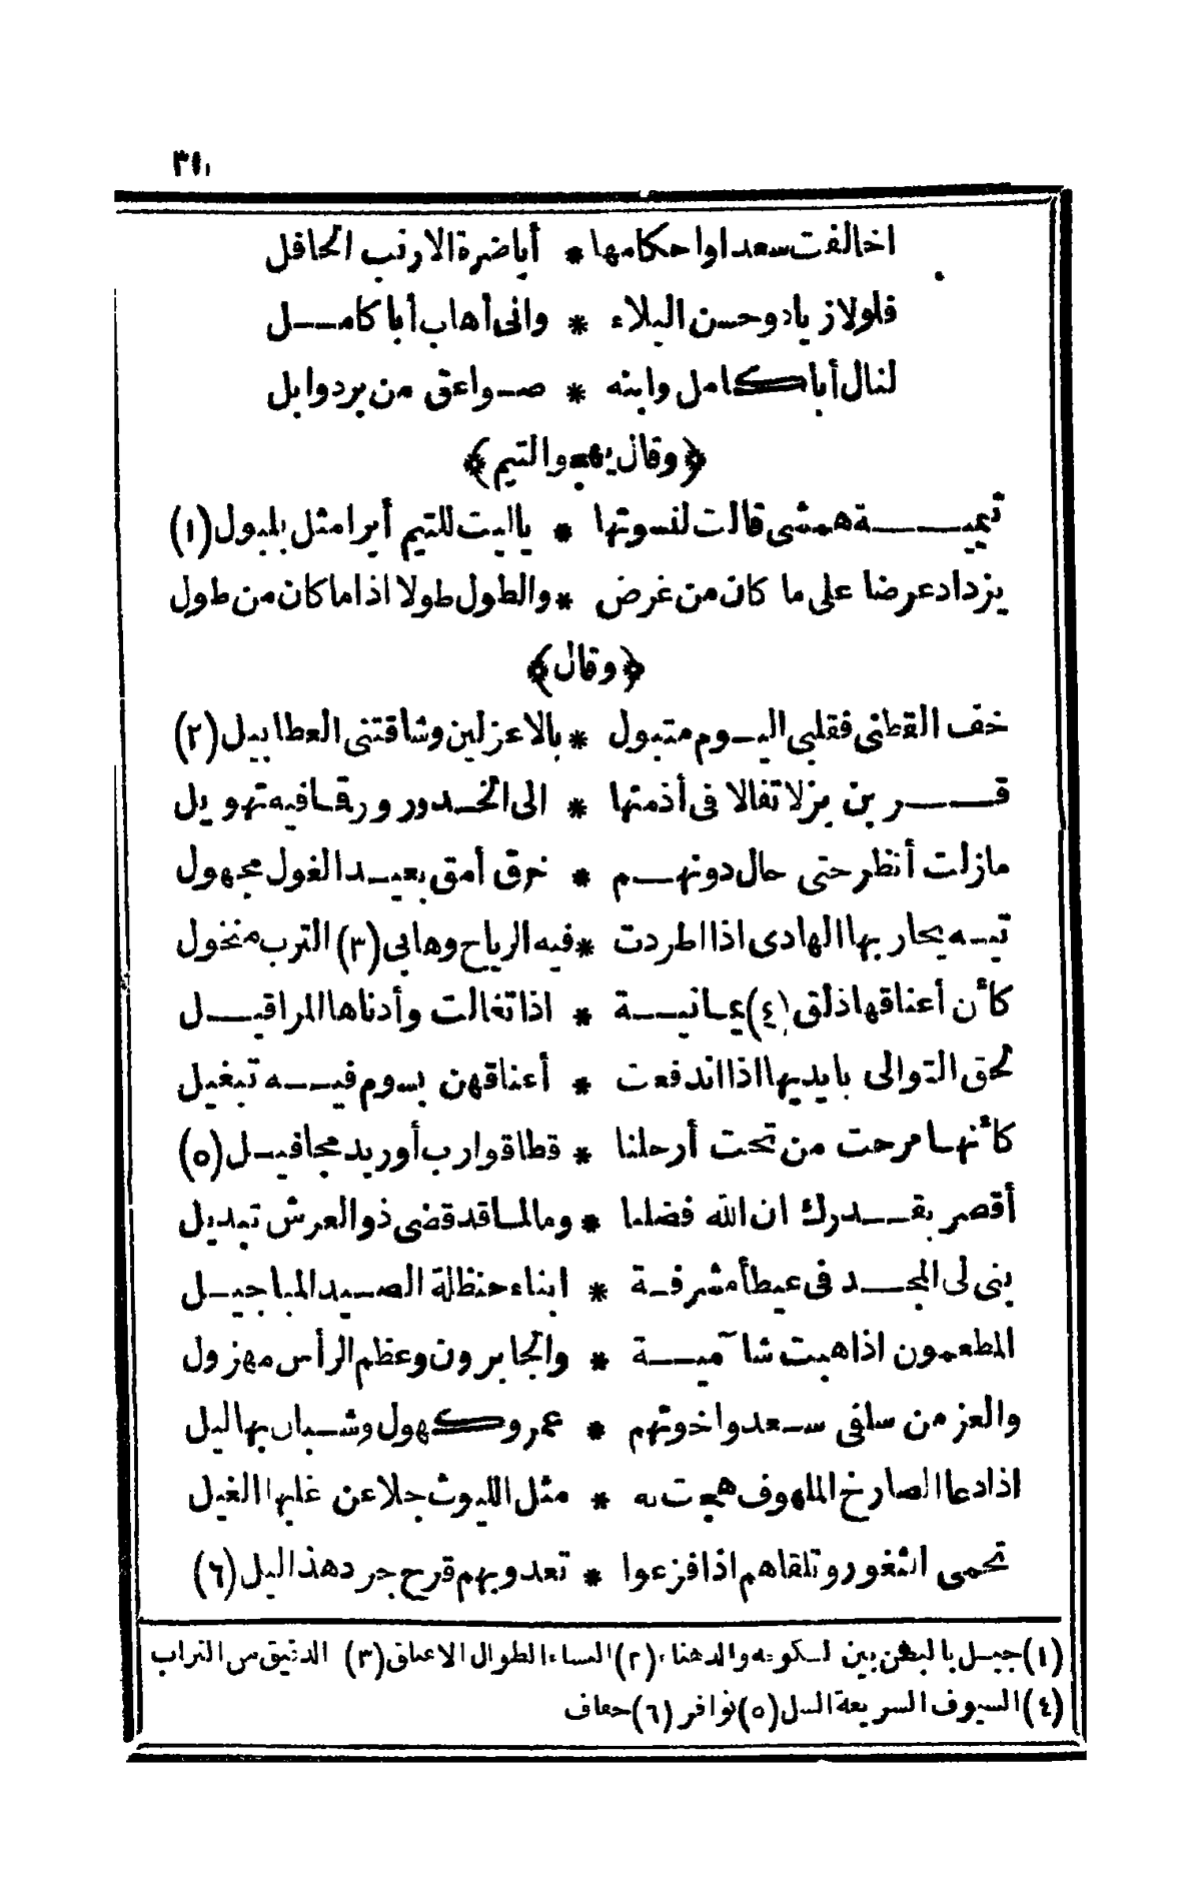 اخالفت سعدا وا حكامها * أياضرة الارنب الحافل
فلولا زياد وحسن البلاء * وانى أهاب أبا كامـــل
لنال أبا كامل وابنه * صـواعق من برد وابل
﴿وقال يهجو التيم﴾
تيميـــــة همشى قالت لنسوتها * ياليت للتيم أيرا مثل بلمبول (١)
يزداد عرضا على ما كان من غرض * والطول طولا اذا ما كان من طول
﴿وقال﴾
خف القطني فقلبي اليـوم متبول * بالاعزلين وشاقتنى العطابيل (٢)
قـــــربن بزلا تفالا فى أذمتها * الى الخـدور ورقـا فيه تهويل
مازلت أنظر حتى حال دونهـــم * خرق أمق بعيــد الغول مجهول
تيـه يحار بها الهادى اذا اطردت * فيه الرياح وهابى (٣) الترب منخول
كأن أعناقها ذلق (٤) يمـانيــة * اذا تغالت وأدناها المراقيـــل
لحق التوالى بايديها اذا اندفعت * أعناقهن بسوم فيـــه تبغيل
كأنهـا مرحت من تحت أرحلنا * قطا قوارب أوربد مجافيـل (٥)
أقصر بقـــدرك ان الله فضلنا * وما لمـا قد قضى ذو العرش تبديل
بنى لى المجــد فى عيطأ مشرفـة * ابناء حنظلة الصـيد المباجيـل
المطعمون اذا هبت شاآميــــة * والجابرون وعظم الرأس مهزول
والعز من سلفى ســعد واخوتهم * عمرو كهول وشـبان بهاليل
اذا دعا الصارخ الملهوف هجت به * مثل الليوث جلا عن غلبها الغيل
تحمى الثغور وتلقاهم اذا فزعوا * تعدو بهم قرح جرد هذاليل (٦)
(١) جبـل بالبطن بين لـكوته والدهناء، (٢) النساء الطوال الاعناق (٣) الدقيق من التراب
(٤) السيوف السريعة السل (٥) نوافر (٦) خفاف